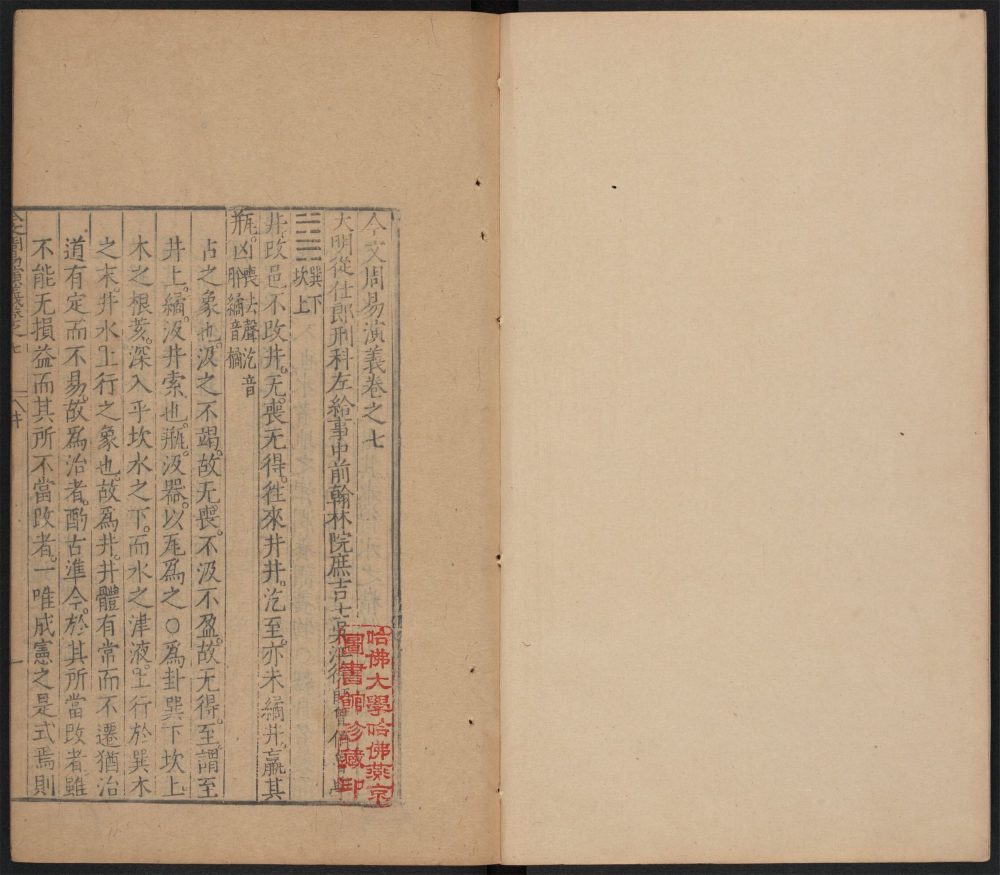 今文周易演義卷之七
大明從仕郎刑科左給事中前翰林院庶吉士吳江徐師曾伯魯學
巽下
坎上
井改邑不改井。无喪无得。徃來井井。汔至。亦未繘井。羸其
瓶。凶喪去聲汔音
肸繘音橘
占之象也。汲之不竭。故无喪。不汲不盈。故无得。至。謂至
井上。繘。汲井索也。瓶。汲器。以瓦爲之〇爲卦巽下坎上。
木之根荄。深入乎坎水之下。而水之津液。上行於巽木
之末。井水上行之象也。故爲井。井體有常而不遷。猶治
道有定而不易。故爲治者。酌古準今。於其所當改者。雖
不能无損益。而其所不當改者。一唯成憲之是式焉。則
今文周易演義卷之七
井
一
哈佛大學哈佛燕京
圖書館珍藏印